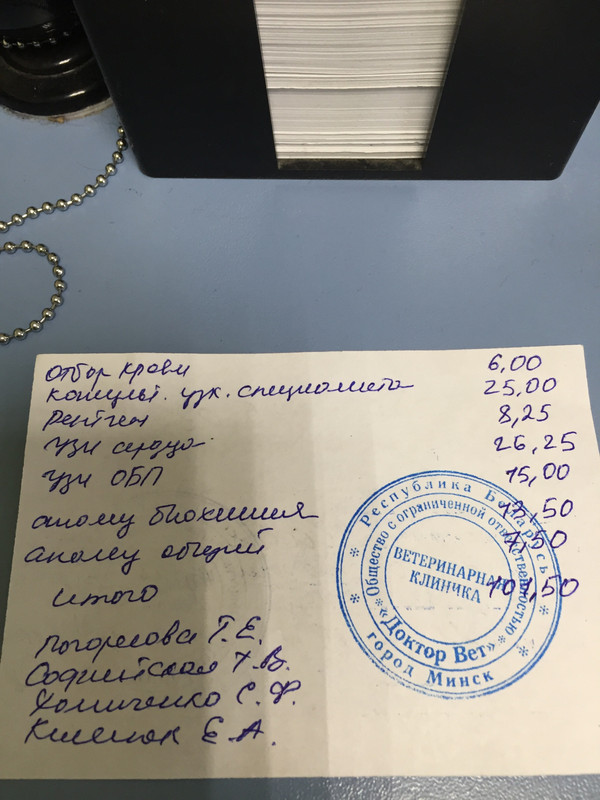 Отбор крови 6,00
Консульт. узк. специалиста 25,00
Рентген 8,25
узи сердца 26,25
узи ОБП 15,00
анализ биохимия 13,50
анализ общий 7,50
Итого 101,50
Погорелова Т.Е.
Софийская Т.В.
Хомиченко С.Ф.
Е.А.
Республика Беларусь
Общество с ограниченной ответственностью
ВЕТЕРИНАРНАЯ
КЛИНИКА
«Доктор Вет»
город Минск